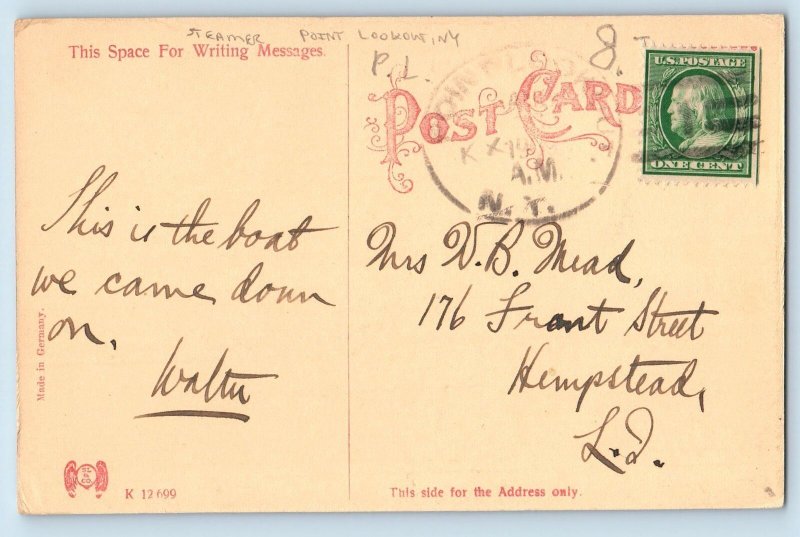 STEAMER POINT LOOKOUT, NY
P. L.
8.
This Space For Writing Messages.
POST CARD
A.M.
N.Y.
U.S. POSTAGE
ONE CENT
This is the boat
we came down
on.
Walter
Mrs W. B. Mead,
176 Front Street
Hempstead,
L.I.
Made in Germany.
K 12699
This side for the Address only.